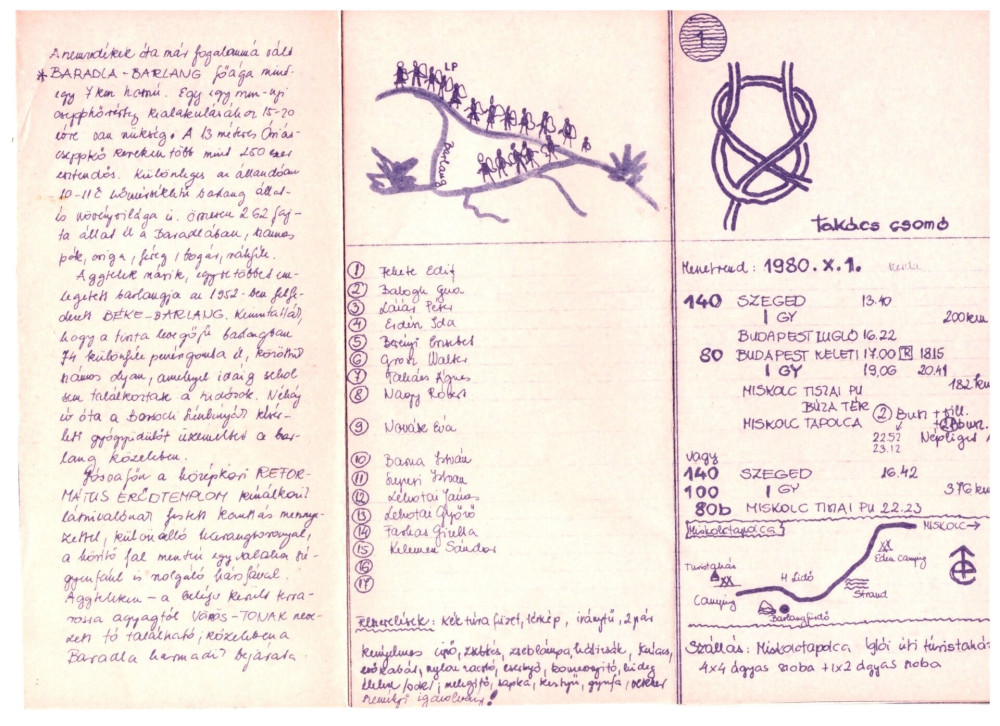 A nemzedékek óta már fogalommá vált
* BARADLA-BARLANG főága mint-
egy 7 km hosszú. Egy egy mm-nyi
cseppkőréteg kialakulásához 15-20
évre van szükség. A 13 méteres Óriás-
cseppkő kereken több mint 250 ezer
esztendős. Különleges az állandóan
10-11 C° hőmérsékletű barlang állat-
és növényvilága is. Összesen 262 faj-
ta állat él a Baradlában, számos
pók, csiga, féreg, bogár, rákféle.
Aggtelek másik, egyre többet em-
legetett barlangja az 1952-ben felfe-
dezett BÉKE-BARLANG. Kimutatták,
hogy a tiszta levegőjű barlangban
74 különféle penészgomba él, közöttük
számos olyan, amellyel idáig sehol
sem találkoztak a tudósok. Néhány
év óta a Borsodi Szénbányák kísér-
leti gyógyüdülőt üzemeltet a bar-
lang közelében.
Jósvafőn a középkori REFOR-
MÁTUS ERŐDTEMPLOM kínálkozik
látnivalónak festett kazettás mennye-
zettel, különálló harangtoronnyal,
a kerítő fal mentén egy
is szolgáló hársfával.
Aggteleken - a
rossa agyagtól VÖRÖS-TÓNAK neve-
zett tó található, közelében a
Baradla harmadik bejárata.
LP
Barlang
① Fekete Edit
② Balogh Géza
③ Lázár Péter
④ Erdős Ida
⑤ Berényi Erzsébet
⑥ Gross Walter
⑦ Takács Ágnes
⑧ Nagy Róbert
⑨ Novák Éva
⑩ Barna István
⑪ István
⑫ Lehotai János
⑬ Lehotai Győző
⑭ Farkas Gizella
⑮ Kelemen Sándor
⑯
⑰
Felszerelések: Kék túra füzet, térkép, iránytű, 2 pár
kényelmes cipő, zseblámpa, hátizsák, kulacs,
esőkabát, nylon zacskó, esernyő, hideg
élelem, melegítő, sapka, kesztyű, gyufa,
személyi igazolvány!
1
Takács csomó
Menetrend: 1980. X. 1. szerda
140 SZEGED 13.40
| GY 200 km
BUDAPEST ZUGLÓ 16.22
80 BUDAPEST KELETI 17.00 R 18.15
| GY 19.06 20.41
MISKOLC TISZAI PU 182 km
BÚZA TÉR ② Busz + vill.
MISKOLC TAPOLCA
22.52 Népliget
23.12
vagy
140 SZEGED 16.42
100 | GY 376 km
80b MISKOLC TISZAI PU 22.23
Miskolctapolca
MISKOLC →
Éden Camping
Turistaház
H. Lidó
Strand
Camping
Barlangfürdő
É
Szállás: Miskolctapolca Iglói úti turistaház
4x4 ágyas szoba + 1x2 ágyas szoba